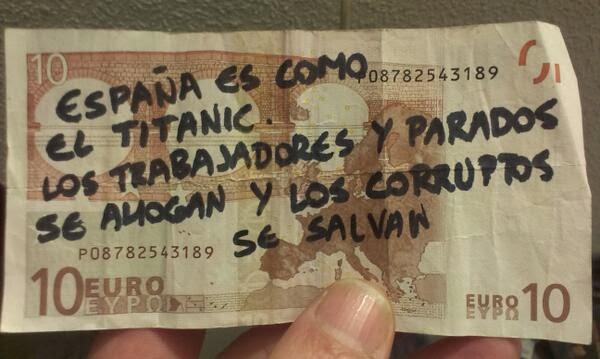 10
ESPAÑA ES COMO
P08782543189
EL TITANIC.
LOS TRABAJADORES Y PARADOS
SE AHOGAN Y LOS CORRUPTOS
SE SALVAN
P08782543189
10 EURO
ΕΥΡΩ
EURO 10
ΕΥΡΩ